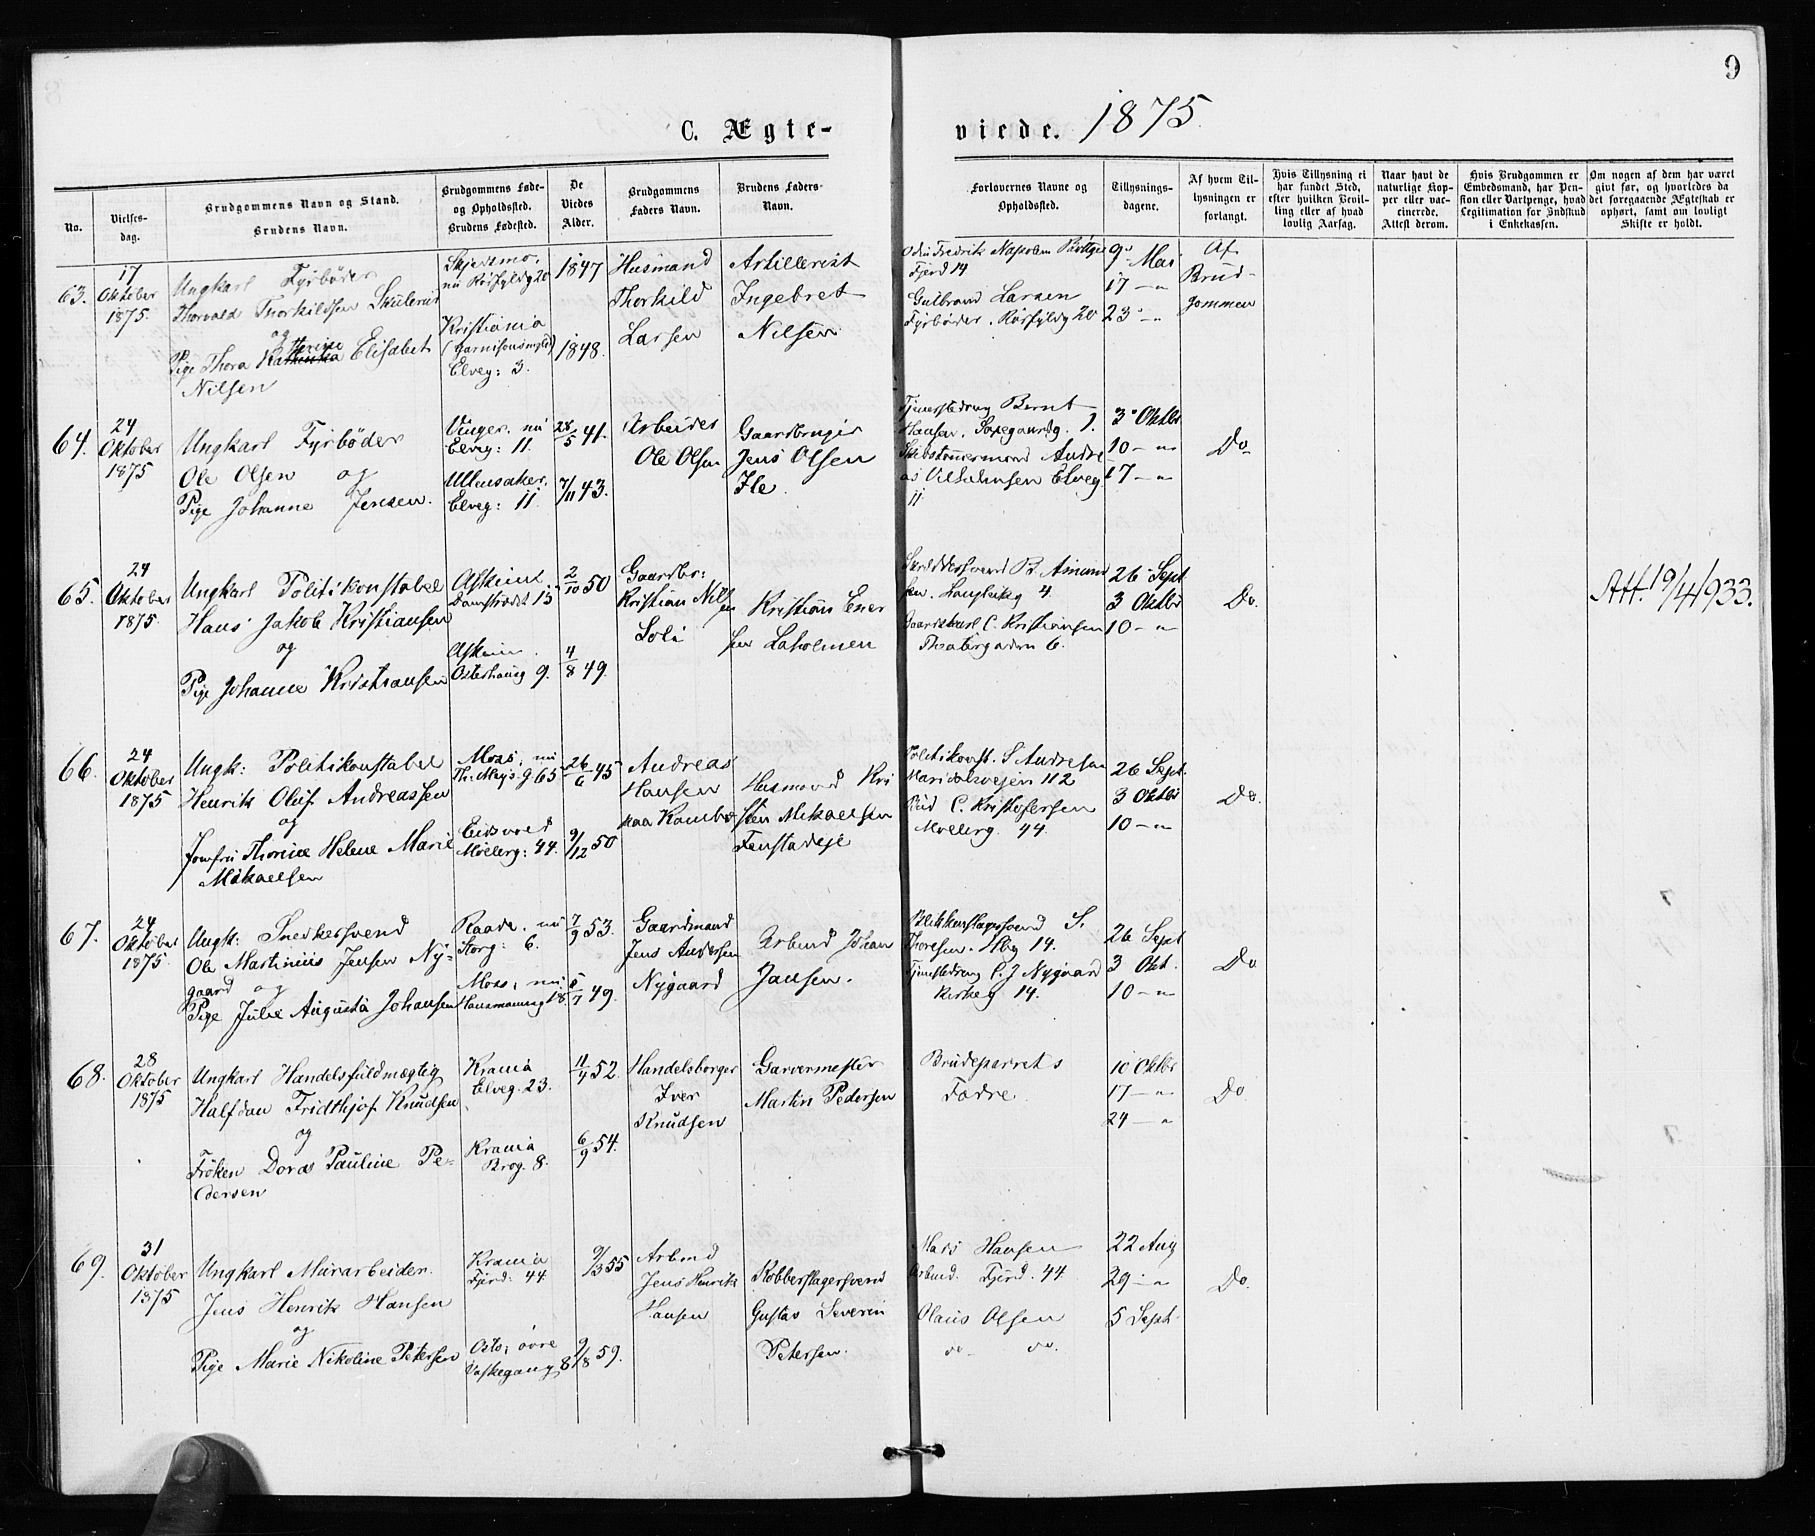 9
C. Ægte- viede. 1875.
No.
Vielses-dag.
Brudgommens Navn og Stand.
Brudens Navn.
Brudgommens Føde- og Opholdssted.
Brudens Fødested.
De Viedes Alder.
Brudgommens Faders Navn.
Brudens Faders Navn.
Forlovernes Navne og Opholdssted.
Tillysnings-dagene.
Af hvem Tillysningen er forlangt.
Hvis Tillysning ei har fundet Sted, efter hvilken Bevilling eller af hvad lovlig Aarsag.
Naar havt de naturlige Kopper eller vaccinerede. Attest derom.
Hvis Brudgommen er Embedsmand, har Pension eller Vartpenge, hvad Legitimation for Indskud i Enkekassen.
Om nogen af dem har været givt før, og hvorledes da det foregaaende Ægteskab er ophørt, samt om lovligt Skifte er holdt.
63.
17 Oktober 1875.
Ungkarl Fyrbøder
Thorvald Thorkildsen
og
Pige Thora Elisabet
Nilsen
Skjedsmo,
nu 20
Kristiania
Elveg: 3.
1847
1848.
Husmand
Thorkild
Larsen
Artillerist
Ingebret
Nilsen
Odin Fredrik Napoleon
Fjerd 14
Gulbrand Larsen
Fyrbøder. 20
9 Mai
17 — "
23 — "
Af
Brud-
gommen
64.
24 Oktober 1875
Ungkarl Fyrbøder
Ole Olsen og
Pige Johanne Jensen.
Vinger. nu
Elveg: 11.
Ullensaker.
Elveg: 11.
28/5 41.
7/11 43.
Arbeider
Ole Olsen
Gaardbruger
Jens Olsen
Ile.
Bernt
Hansen. 1.
Andre
as Elveg.
11
3 Oktbr
10 — "
17 — "
Do
65.
24 Oktober 1875.
Ungkarl Politikonstabel
Hans Jakob Kristiansen
og
Pige Johanne Kristiansen
Askim
Damstrædet 15
Askim.
Osterhausg 9.
2/10 50
4/8 49.
Gaardbr:
Kristian Nils
en
Soli
Kristian Ener
sen Laholmen
Skræddersvend B. Amund
sen. Langleikg 4.
Gaardskarl C. Kristiansen
Theatergaden 6.
26 Sept
3 Oktbr
10 — "
Do.
Att. 19/4 1933.
66.
24 Oktober 1875
Ungk: Politikonstabel
Henrik Oluf Andreassen
og
Jomfru Thorine Helene Marie
Mikaelsen
Moss, nu
Th. Meys. g 65
Eidsvold
Møllerg: 44.
26/6 45
9/12 50
Andreas
Hansen
paa Kambo
Husmand Kri
sten Mikaelsen
Fenstadeje
Politikonst. S. Andresen
Maridalsvejen 112
Bud C. Kristofersen
Møllerg. 44.
26 Sept.
3 Oktbr
10 — "
Do.
67.
24 Oktober 1875.
Ungk: Snedkersvend
Ole Martinius Jensen Ny-
gaard og
Pige Julie Augusta Johansen
Raade, nu
Storg: 6.
Moss, nu
Hausmannsg 18.
7/9 53.
5/7 49.
Gaardmand
Jens Andersen
Nygaard
Arbmd Johan
Jansen.
Blikkenslagersvend S.
Thoresen. 14.
C. J. Nygaard
Kirkeg 14.
26 Sept
3 Okt.
10 — "
Do
68.
28 Oktober 1875
Ungkarl Handelsfuldmægtig
Halfdan Fridthjof Knudsen
og
Frøken Dora Pauline Pe-
dersen
Krania
Elveg. 23.
Krania
Brog. 8.
11/4 52.
6/9 54.
Handelsborger
Iver
Knudsen
Garvermester
Martin Pedersen
Brudeparrets
Fædre.
10 Oktbr
17 — "
24 — "
Do
69.
31 Oktober 1875
Ungkarl Murarbeider.
Jens Henrik Hansen
og
Pige Marie Nikoline Petersen
Krania
Fjerd: 44.
Oslo, øvre
Vaskegang 8
9/3 55
9/8 59.
Arbmd
Jens Henrik
Hansen
Kobberslagersvend
Gustav Severin
Petersen.
Mads Hansen
Arbmd. Fjerd. 44.
Olaus Olsen
do. do.
22 Aug
29 — "
5 Sept.
Do.